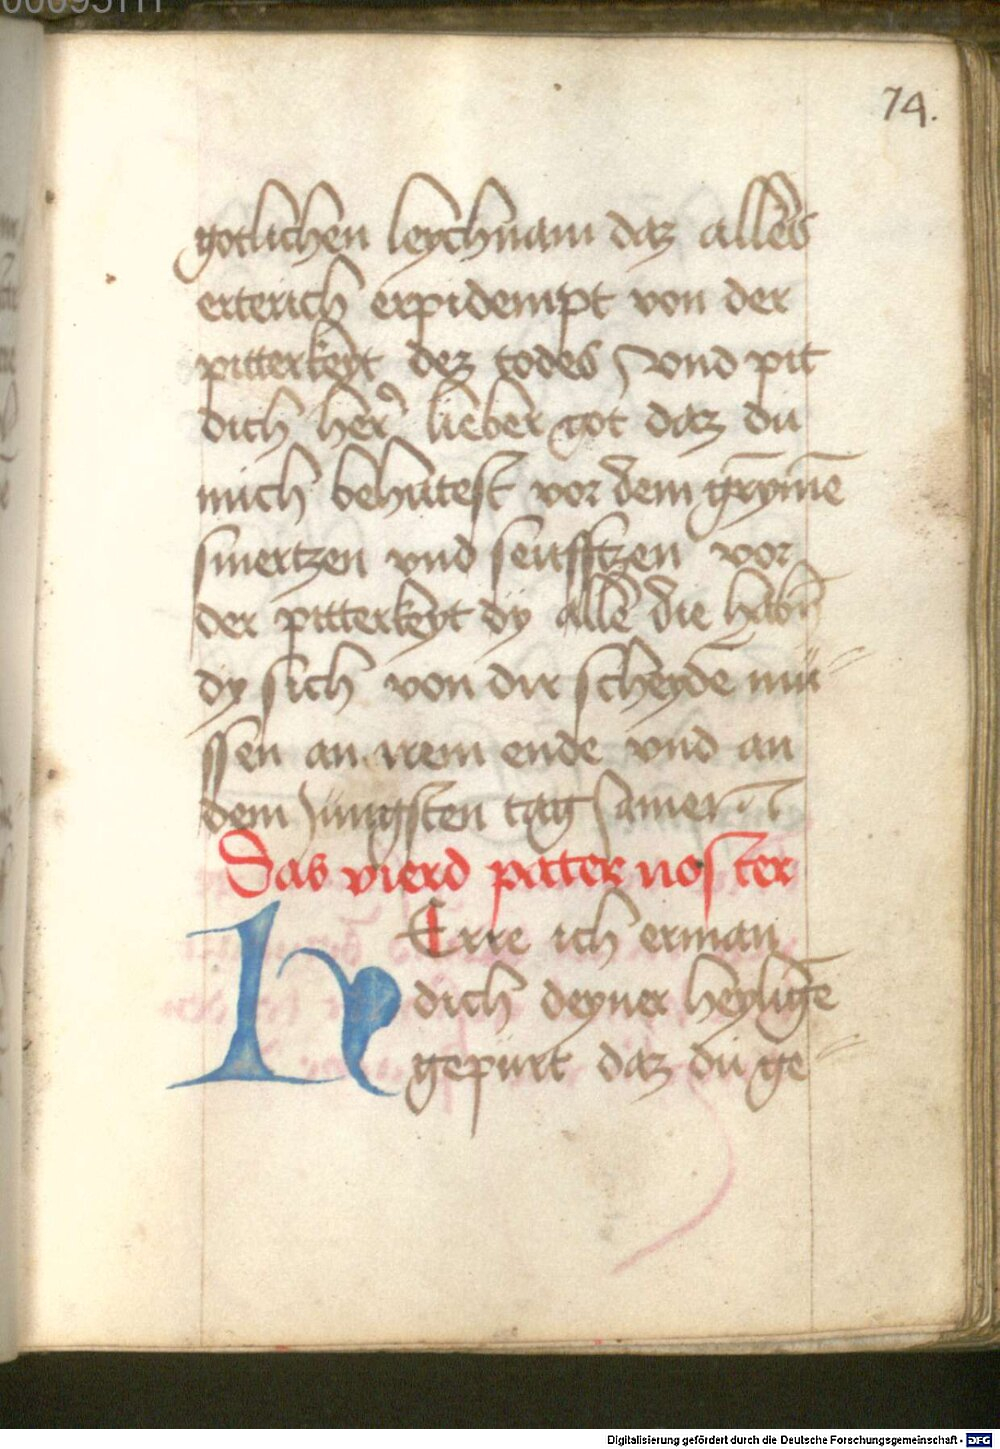 74.
gotlichen leychnam daz alles
erterich erpidempt von der
pitterkeyt dez todes / vnd pit
dich her' lieber got daz du
mich behutest vor dem grȳmē
smertzen vnd seufftzen vor
der pitterkeyt dy alle die habn̄
dy sich von dir scheydē mu᷑=
ssen an irem ende vnd an
dem Jungsten tag / amen
Das vierd pater noster
HErre ich erman
dich deyner heyligē
gepurt daz du ge=
Digitalisierung gefördert durch die Deutsche Forschungsgemeinschaft - DFG